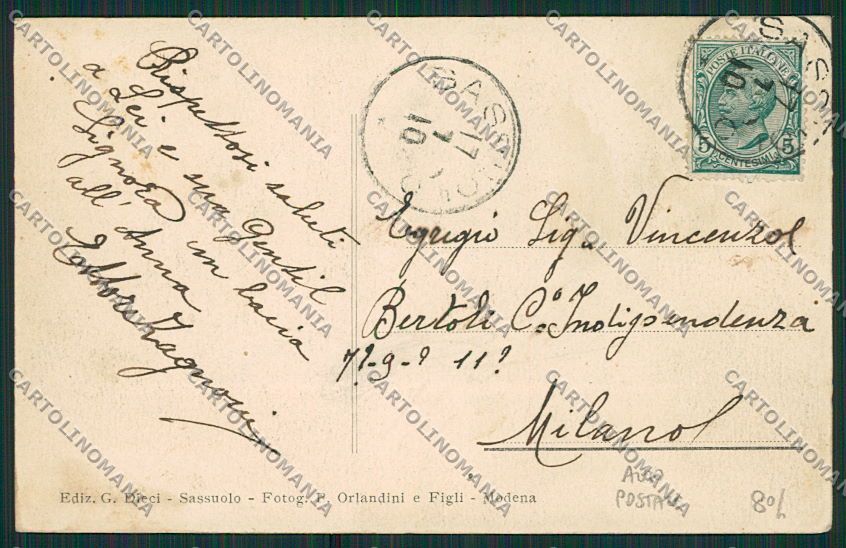 Rispettosi saluti
a Lei e sua Gentil
Signora un bacio
all' Anna
Ettore Zagnoni
SASSUOLO
17
10
POSTE ITALIANE
5 CENTESIMI 5
SASSUOLO
17
10
Egregio Sig. Vincenzo
Bertoli C.º Indipendenza
11
Milano
Ediz. G. Dieci - Sassuolo - Fotog. P. Orlandini e Figli - Modena
POSTALE
80/
CARTOLINOMANIA